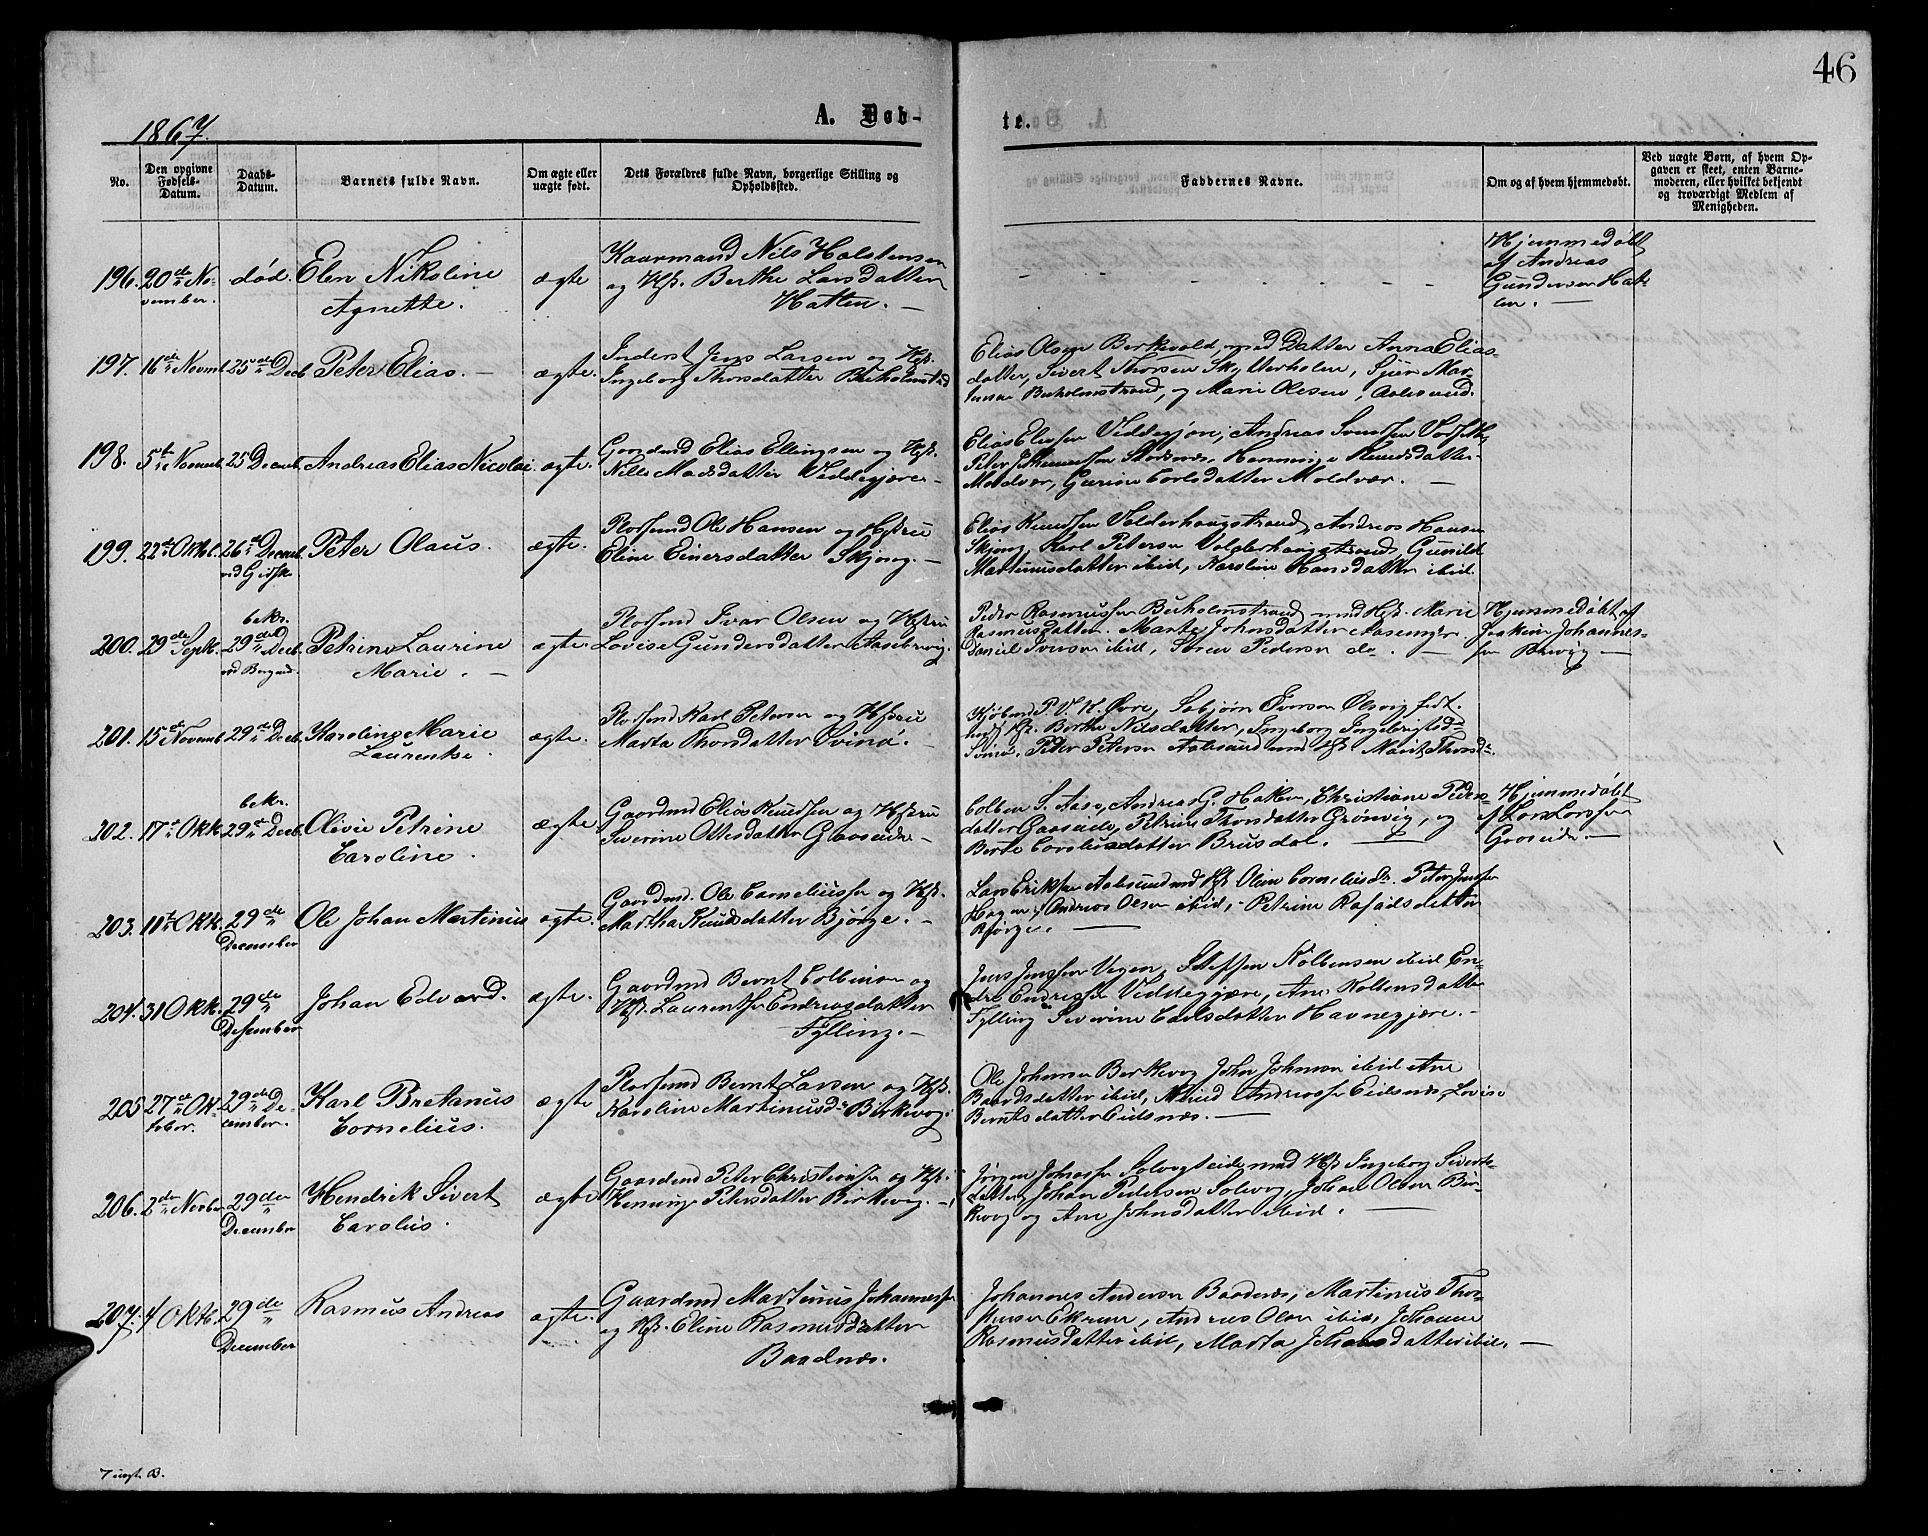 46
1867.
A. Døb-
te.
No.
Den opgivne Fødsels-Datum.
Daabs-Datum.
Barnets fulde Navn.
Om ægte eller uægte født.
Dets Forældres fulde Navn, borgerlige Stilling og Opholdssted.
Faddernes Navne.
Om og af hvem hjemmedøbt.
Ved uægte Børn, af hvem Opgaven er skeet, enten Barnemoderen, eller hvilket bekjendt og troværdigt Medlem af Menigheden.
196. 20de November. død. Elen Nikoline Agnette. ægte
Kaarmand Nils Holstensen
og Hst. Berthe Larsdatter
Hatlen.
Hjemmedøbt
af Andreas
Gundersen Hat-
len.
197. 16de Novmb. 25de Decb. Peter Elias. ægte.
Inderst Jens Larsen og Hst.
Ingeborg Thorsdatter Buholmstrd
Elias Olsen Berkvold, med Datter Anna Elias-
datter, Sivert Thorsen
Buholmstrand, og Marie Olesen, Aalesund.
198. 5te Novemb. 25 Decemb. Andreas Elias Nicolai ægte.
Gaardmd Elias Ellingsen og Hst.
Nille Madsdatter Veddegjære
Elias Eliasen Veddegjære, Andreas
Hemminge Knudsdatter
Moldvær, Gurine Carlsdatter Moldvær.
199. 22de Oktb. 26de Decemb. ved Giske Peter Olaus. ægte.
Pladsmd Ole Hansen og Hustru
Eline Einersdatter Skjong.
Elias Knudsen Valderhaugstrand, Andreas Hansen
Skjong, Karl Petersen Valderhaugstrand, Gunild
Martinusdatter ibid, Karoline Hansdatter ibid.
200. 29de Septb. bekr. 29de Decb. ved Borgund. Petrine Laurine Marie. ægte.
Pladsmd Ivar Olsen og Hustru
Lovise Gundersdatter Aasebrevig.
Peder Rasmussen Buholmstrand med Hst. Marie
Rasmusdatter. Marte Johnsdatter
Daniel Iversen ibid, Søren Pedersen do.
Hjemmedøbt af
Johannes-
sen
201. 15de Novemb. 29de Decb. Karoline Marie Laurentse. ægte.
Pladsmd Karl Petersen og Hustru
Marta Thorsdatter Svinø.
Kjøbmd P. V. K. Øvre,
Berthe Nilsdatter, Ingeborg Ingebrigtsdr
Svinø, Peter Petersen Aalesund med Hst. Marit Thorsdr.
202. 17de Oktb. bekr. 29de Decb. Olivie Petrine Caroline. ægte
Gaardmd Elias Knudsen og Hustru
Severine Ottesdatter Gaaseide
Colben S. Aase, Andreas G. Hatlen, Christiane Peders-
datter Gaaseide, Petrine Thorsdatter Grønvig, og
Berte Corneliusdatter Brusdal.
Hjemmedøbt
af Lars Larssen
Gaaseide.
203. 11te Oktb. 29de December Ole Johan Martinus ægte.
Gaardmd. Ole Corneliussen og Hst.
Martha Knudsdatter Bjørge.
Lars Eriksen Aalesund med Hst Oline Corneliusdr. Peter Jenssen
Hagen, Andreas Olsen ibid, Petrine Rafaelsdatter
Bjørge.
204. 31 Oktb. 29de December Johan Edvard. ægte.
Gaardmd Bernt Colbensen og
Hst. Laurentse Endresdatter
Fylling.
Jens Jenssen Vegen, Steffen Kolbensen ibid En-
dre Endressen Veddegjære, Ane Kolbensdatter
Fylling Severine Carlsdatter Havnegjære.
205 27de Oktober. 29de December. Karl Bretanus Cornelius. ægte
Pladsmd Bernt Larsen og Hst.
Karoline Martinusdr Birkevog.
Ole Johnsen Berkevog John Johnsen ibid Ane
Baardsdatter ibid, Knud Andreassen Eidsnæs, Lovise
Berntsdatter Eidsnæs.
206. 2den Novbr. 29de December Hendrik Sivert Carolus. ægte
Gaardmd Peter Christiansen og Hst.
Heminge Petersdatter Birkevog.
Jørgen Johnassen Solevogseide med Hst Ingeborg Siverts-
datter, Johan Pedersen Solevog, Johan Olsen Bir-
kevog og Ane Johnsdatter ibid.
207. 4 Oktb. 29de December Rasmus Andreas ægte.
Gaardmd Martinus Johannessen
og Hst. Eline Rasmusdatter
Baadnæs.
Johannes Andersen Baadnæs, Martinus Thor-
stensen Ekrene, Andreas Olsen ibid, Johanne
Rasmusdatter ibid, Marta Johansdatter ibid.
7 uægte B.